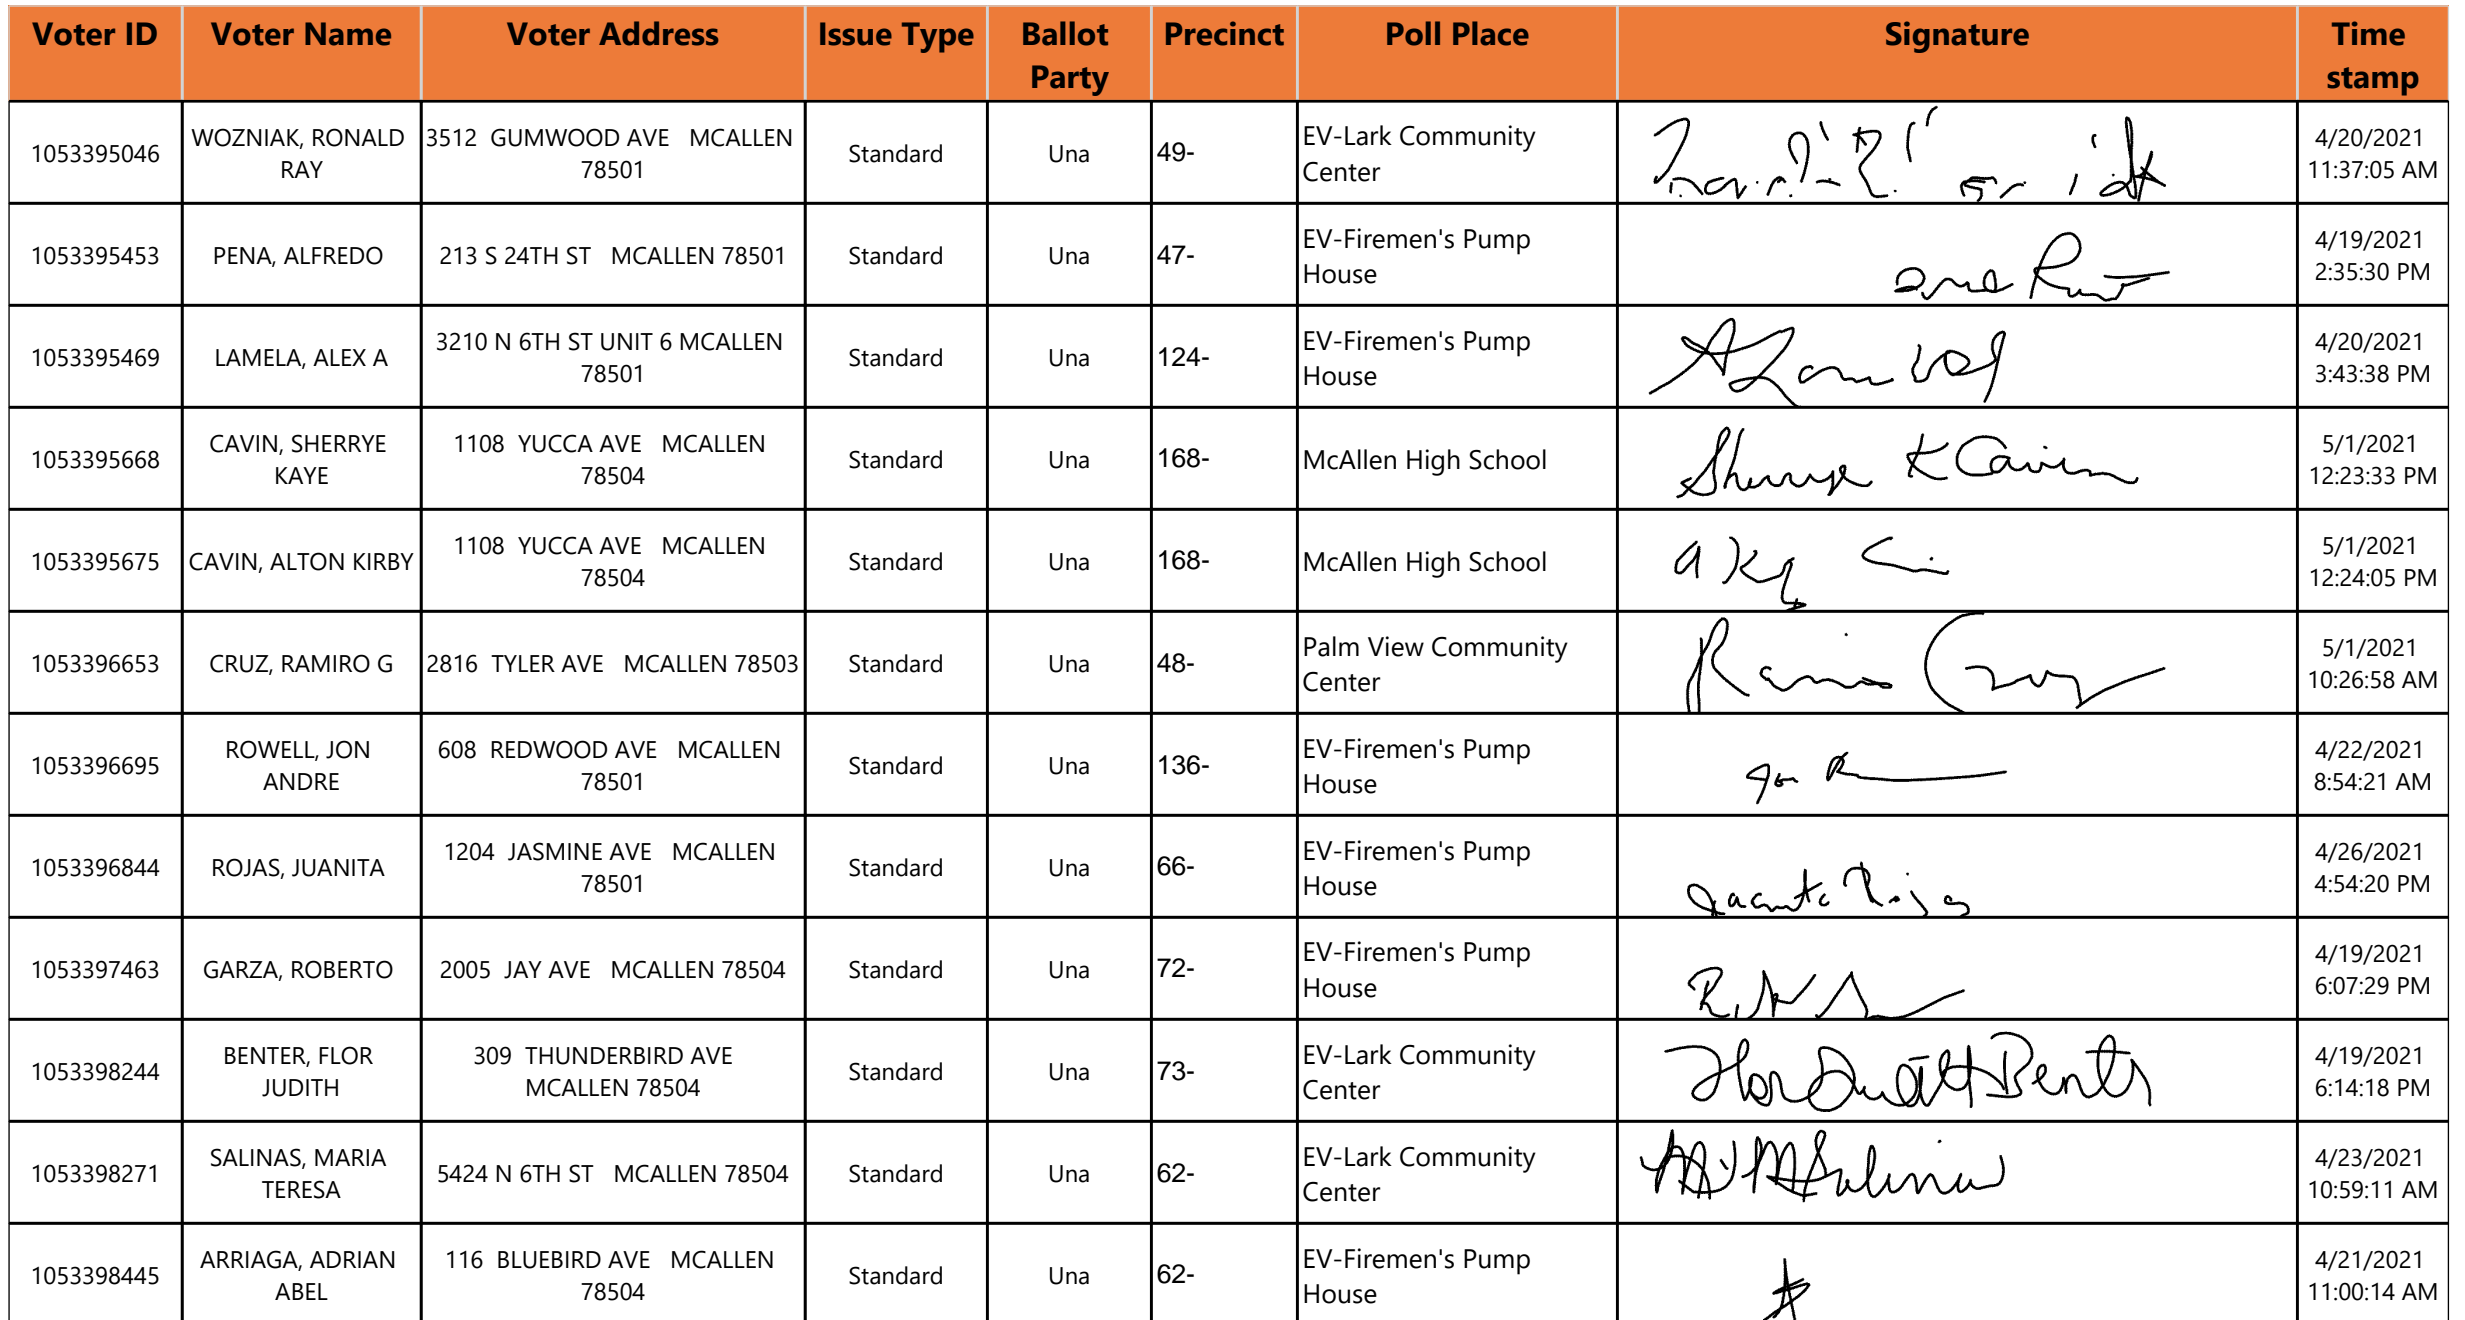 Voter ID Voter Name Voter Address Issue Type Ballot Party Precinct Poll Place Signature Time stamp
1053395046 WOZNIAK, RONALD RAY 3512 GUMWOOD AVE MCALLEN 78501 Standard Una 49- EV-Lark Community Center 4/20/2021 11:37:05 AM
1053395453 PENA, ALFREDO 213 S 24TH ST MCALLEN 78501 Standard Una 47- EV-Firemen's Pump House 4/19/2021 2:35:30 PM
1053395469 LAMELA, ALEX A 3210 N 6TH ST UNIT 6 MCALLEN 78501 Standard Una 124- EV-Firemen's Pump House 4/20/2021 3:43:38 PM
1053395668 CAVIN, SHERRYE KAYE 1108 YUCCA AVE MCALLEN 78504 Standard Una 168- McAllen High School Sherrye K Cavin 5/1/2021 12:23:33 PM
1053395675 CAVIN, ALTON KIRBY 1108 YUCCA AVE MCALLEN 78504 Standard Una 168- McAllen High School 5/1/2021 12:24:05 PM
1053396653 CRUZ, RAMIRO G 2816 TYLER AVE MCALLEN 78503 Standard Una 48- Palm View Community Center 5/1/2021 10:26:58 AM
1053396695 ROWELL, JON ANDRE 608 REDWOOD AVE MCALLEN 78501 Standard Una 136- EV-Firemen's Pump House 4/22/2021 8:54:21 AM
1053396844 ROJAS, JUANITA 1204 JASMINE AVE MCALLEN 78501 Standard Una 66- EV-Firemen's Pump House 4/26/2021 4:54:20 PM
1053397463 GARZA, ROBERTO 2005 JAY AVE MCALLEN 78504 Standard Una 72- EV-Firemen's Pump House 4/19/2021 6:07:29 PM
1053398244 BENTER, FLOR JUDITH 309 THUNDERBIRD AVE MCALLEN 78504 Standard Una 73- EV-Lark Community Center 4/19/2021 6:14:18 PM
1053398271 SALINAS, MARIA TERESA 5424 N 6TH ST MCALLEN 78504 Standard Una 62- EV-Lark Community Center 4/23/2021 10:59:11 AM
1053398445 ARRIAGA, ADRIAN ABEL 116 BLUEBIRD AVE MCALLEN 78504 Standard Una 62- EV-Firemen's Pump House 4/21/2021 11:00:14 AM